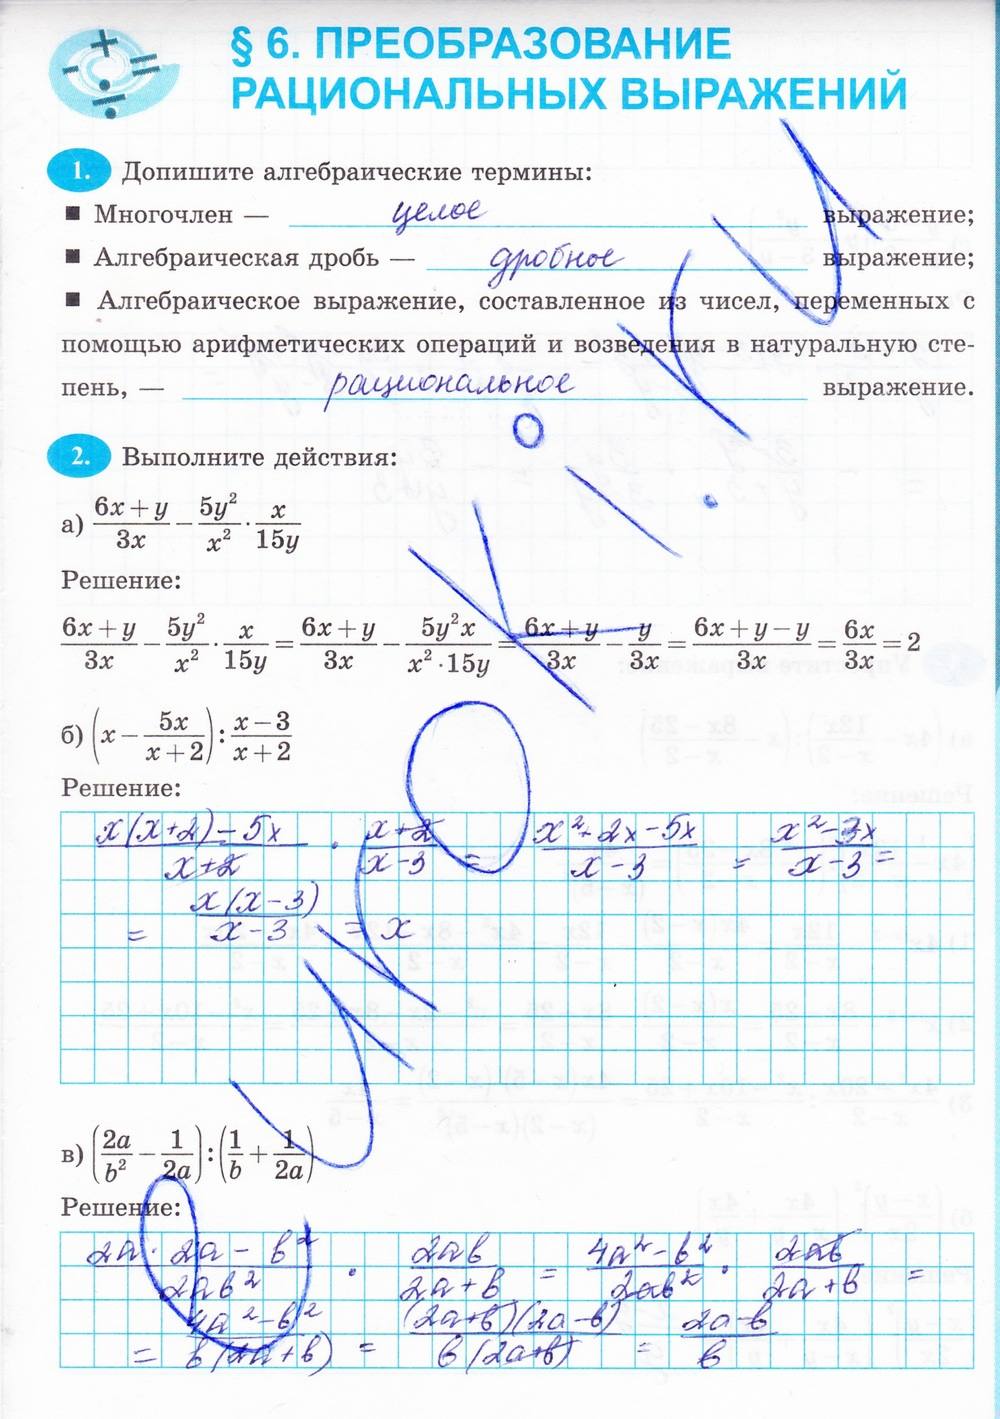 § 6. ПРЕОБРАЗОВАНИЕ
РАЦИОНАЛЬНЫХ ВЫРАЖЕНИЙ
1. Допишите алгебраические термины:
■ Многочлен — целое выражение;
■ Алгебраическая дробь — дробное выражение;
■ Алгебраическое выражение, составленное из чисел, переменных с
помощью арифметических операций и возведения в натуральную сте-
пень, — рациональное выражение.
2. Выполните действия:
а) (6x + y)/(3x) − (5y²)/(x²) · x/(15y)
Решение:
(6x + y)/(3x) − (5y²)/(x²) · x/(15y) = (6x + y)/(3x) − (5y²x)/(x² · 15y) = (6x + y)/(3x) − y/(3x) = (6x + y − y)/(3x) = (6x)/(3x) = 2
б) (x − (5x)/(x + 2)) : (x − 3)/(x + 2)
Решение:
(x(x+2) − 5x)/(x+2) · (x+2)/(x−3) = (x² + 2x − 5x)/(x−3) = (x² − 3x)/(x−3) =
= (x(x−3))/(x−3) = x
в) ((2a)/(b²) − 1/(2a)) : (1/b + 1/(2a))
Решение:
(2a · 2a − b²)/(2ab²) · (2ab)/(2a+b) = (4a² − b²)/(2ab²) · (2ab)/(2a+b) =
= (4a² − b²)/(b(2a+b)) = ((2a+b)(2a−b))/(b(2a+b)) = (2a−b)/b
СУРОКИ.RU